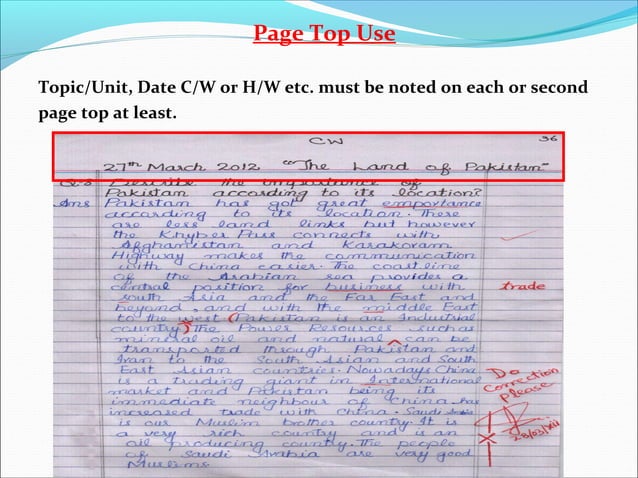 Page Top Use
Topic/Unit, Date C/W or H/W etc. must be noted on each or second
page top at least.
CW 36
27th March 2012 "The Land of Pakistan"
Q:s Describe the importance of
Pakistan according to its location?
Ans Pakistan has got great emportance
according to its location. These
are less land links but however
the Khyber Pass connects with
Afghanistan and Karakoram
Highway makes the communication
with China easier. The coastline
of the Arabian sea provides a
central position for business with trade
south Asia and the Far East and
beyond, and with the middle East
to the west (Pakistan is an Industrial
country) The Power Resources such as
mineral oil and natural ^ can be
transported through Pakistan and
Iran to the South Asian and South
East Asian countries. Nowadays China
is a trading giant in International
market and Pakistan being its
immediate neighbour of China has
increased trade with China. Saudi Arabia
is our Muslim brother country. It is
a very rich country and is an
oil producing country. The people
of Saudi Arabia are very good
Muslims.
Do
Correction
Please
28/03/xii